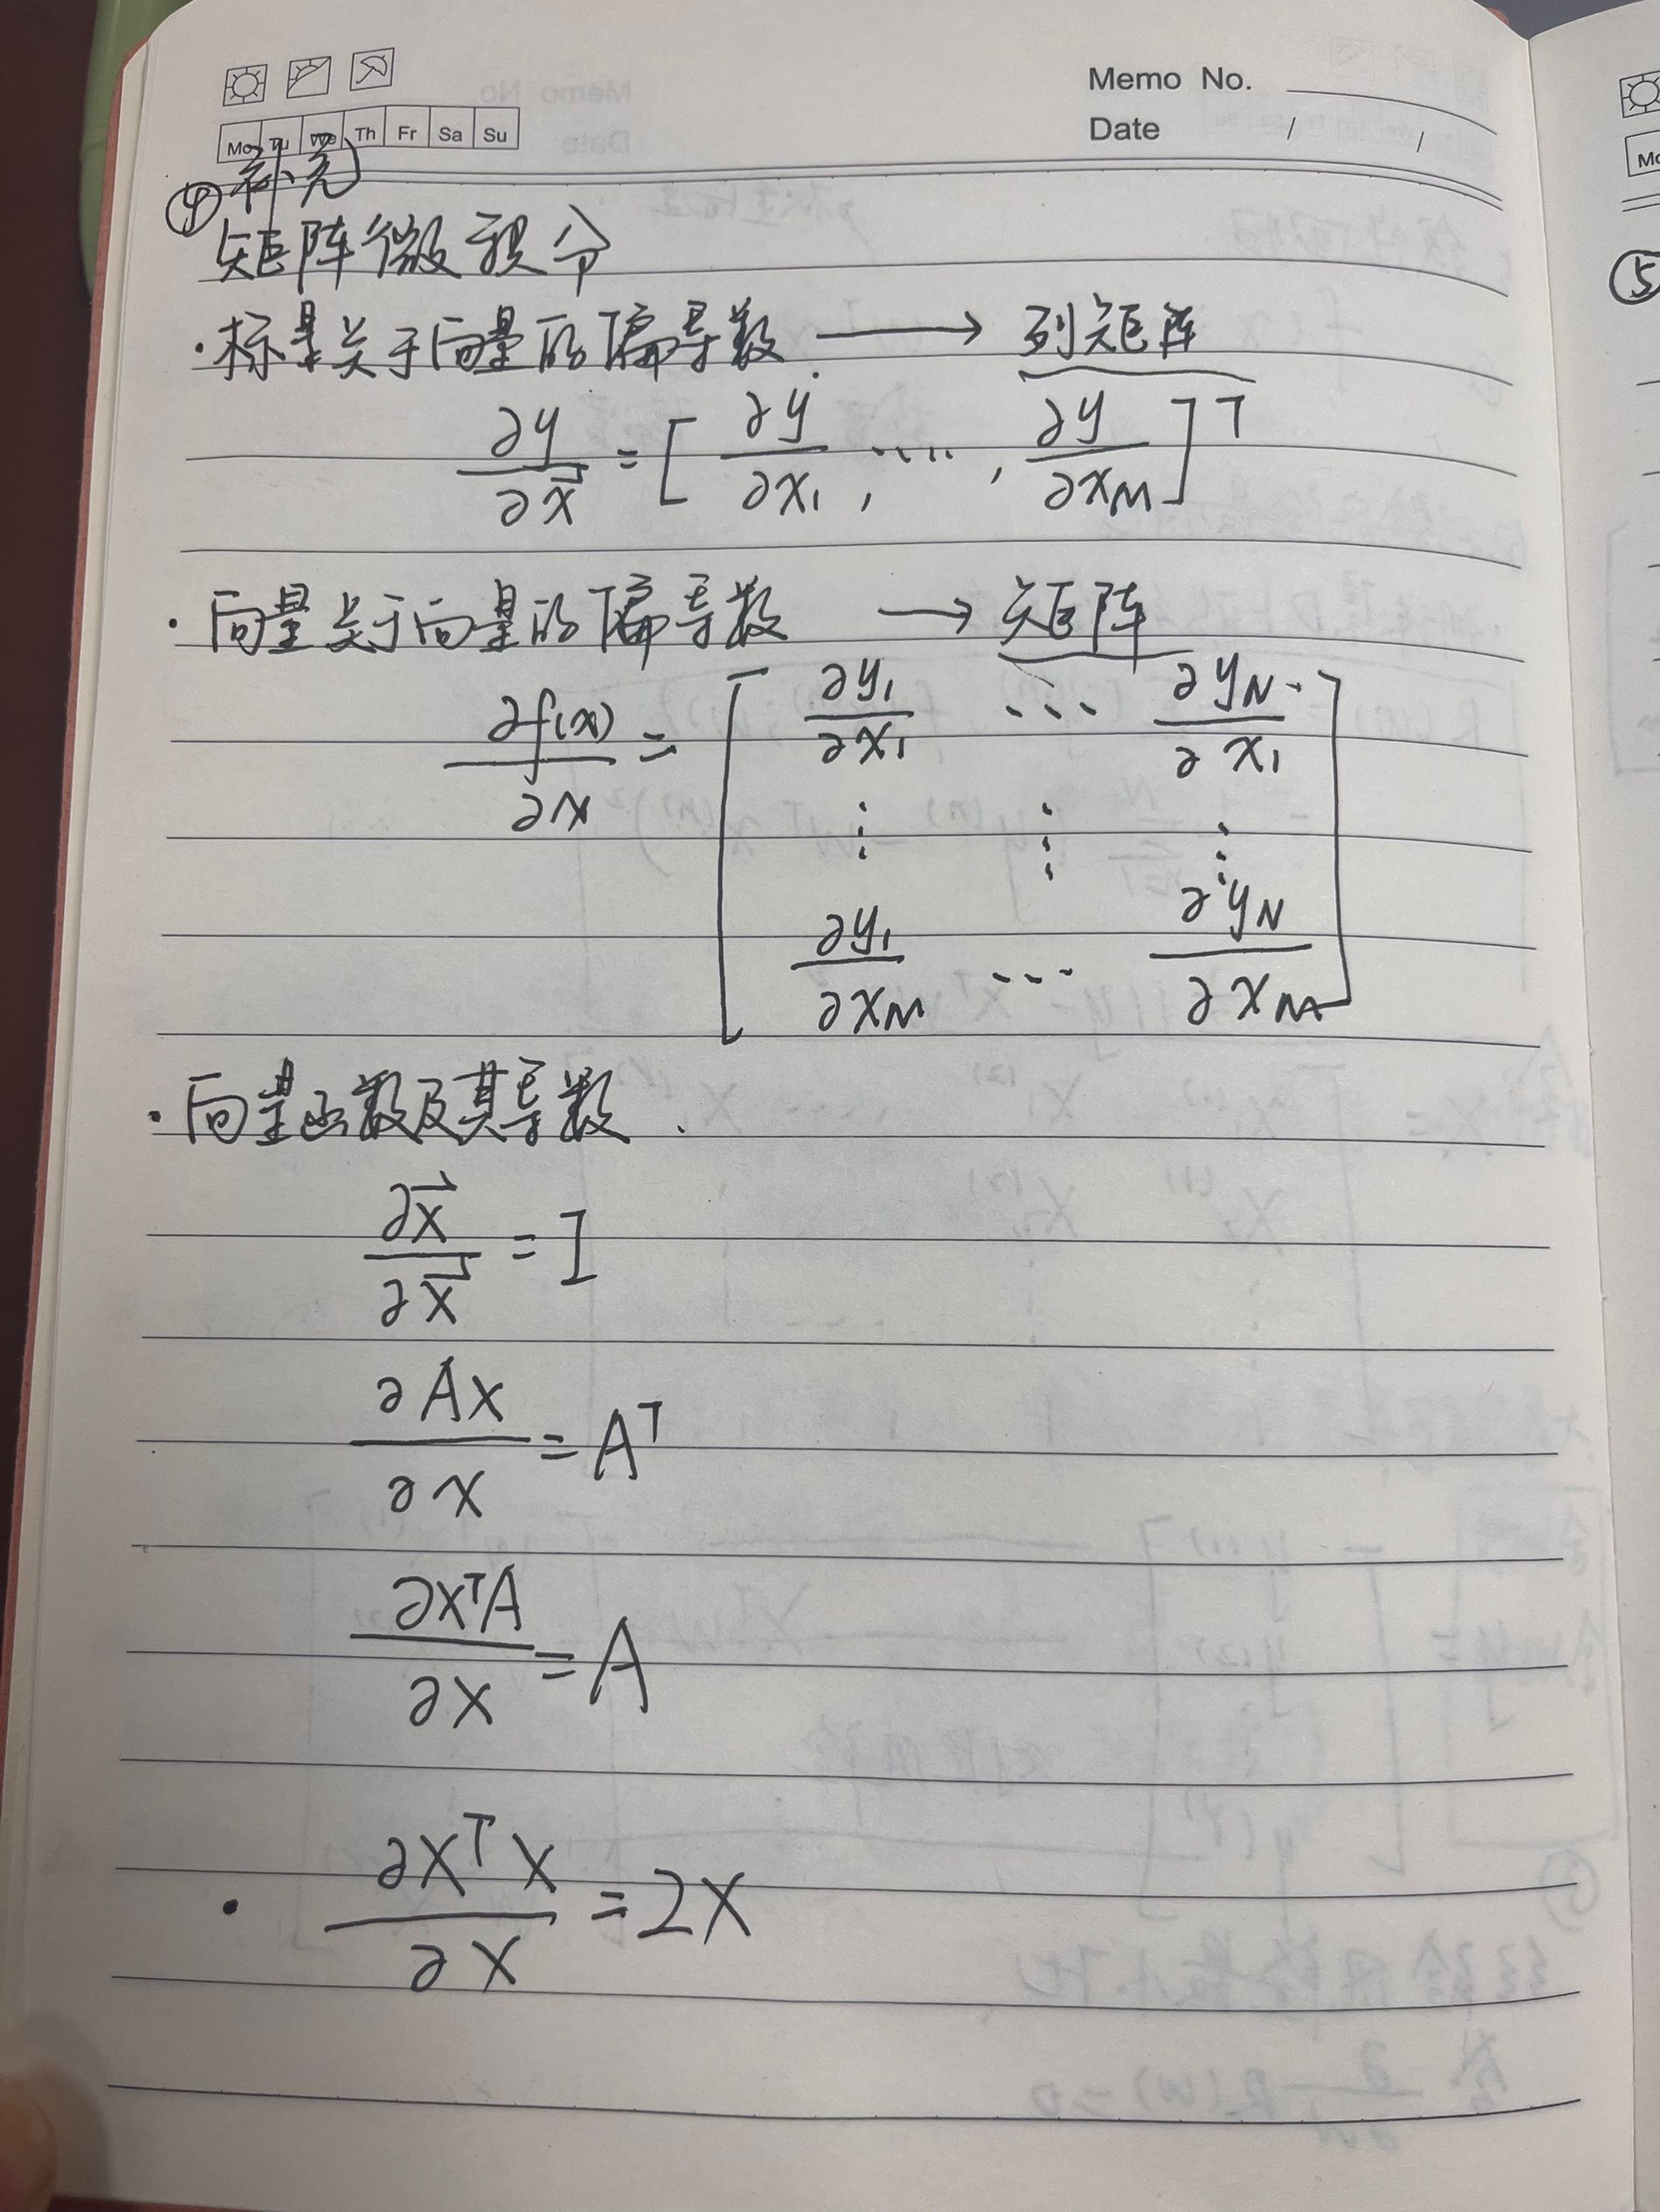 Memo No.
Date / /
Mo Tu We Th Fr Sa Su
④ 补充
矩阵微积分
·标量关于向量的偏导数. → 列矩阵
∂y/∂x⃗ = [∂y/∂x₁, ····, ∂y/∂x_M]ᵀ
·向量关于向量的偏导数 → 矩阵
∂f(x)/∂x = [ ∂y₁/∂x₁ ··· ∂y_N/∂x₁
⋮ ⋮ ⋮
∂y₁/∂x_M ··· ∂y_N/∂x_M ]
·向量函数及其导数.
∂x⃗/∂x⃗ = I
∂Ax/∂x = Aᵀ
∂xᵀA/∂x = A
· ∂xᵀx/∂x = 2x
Mo
⑤